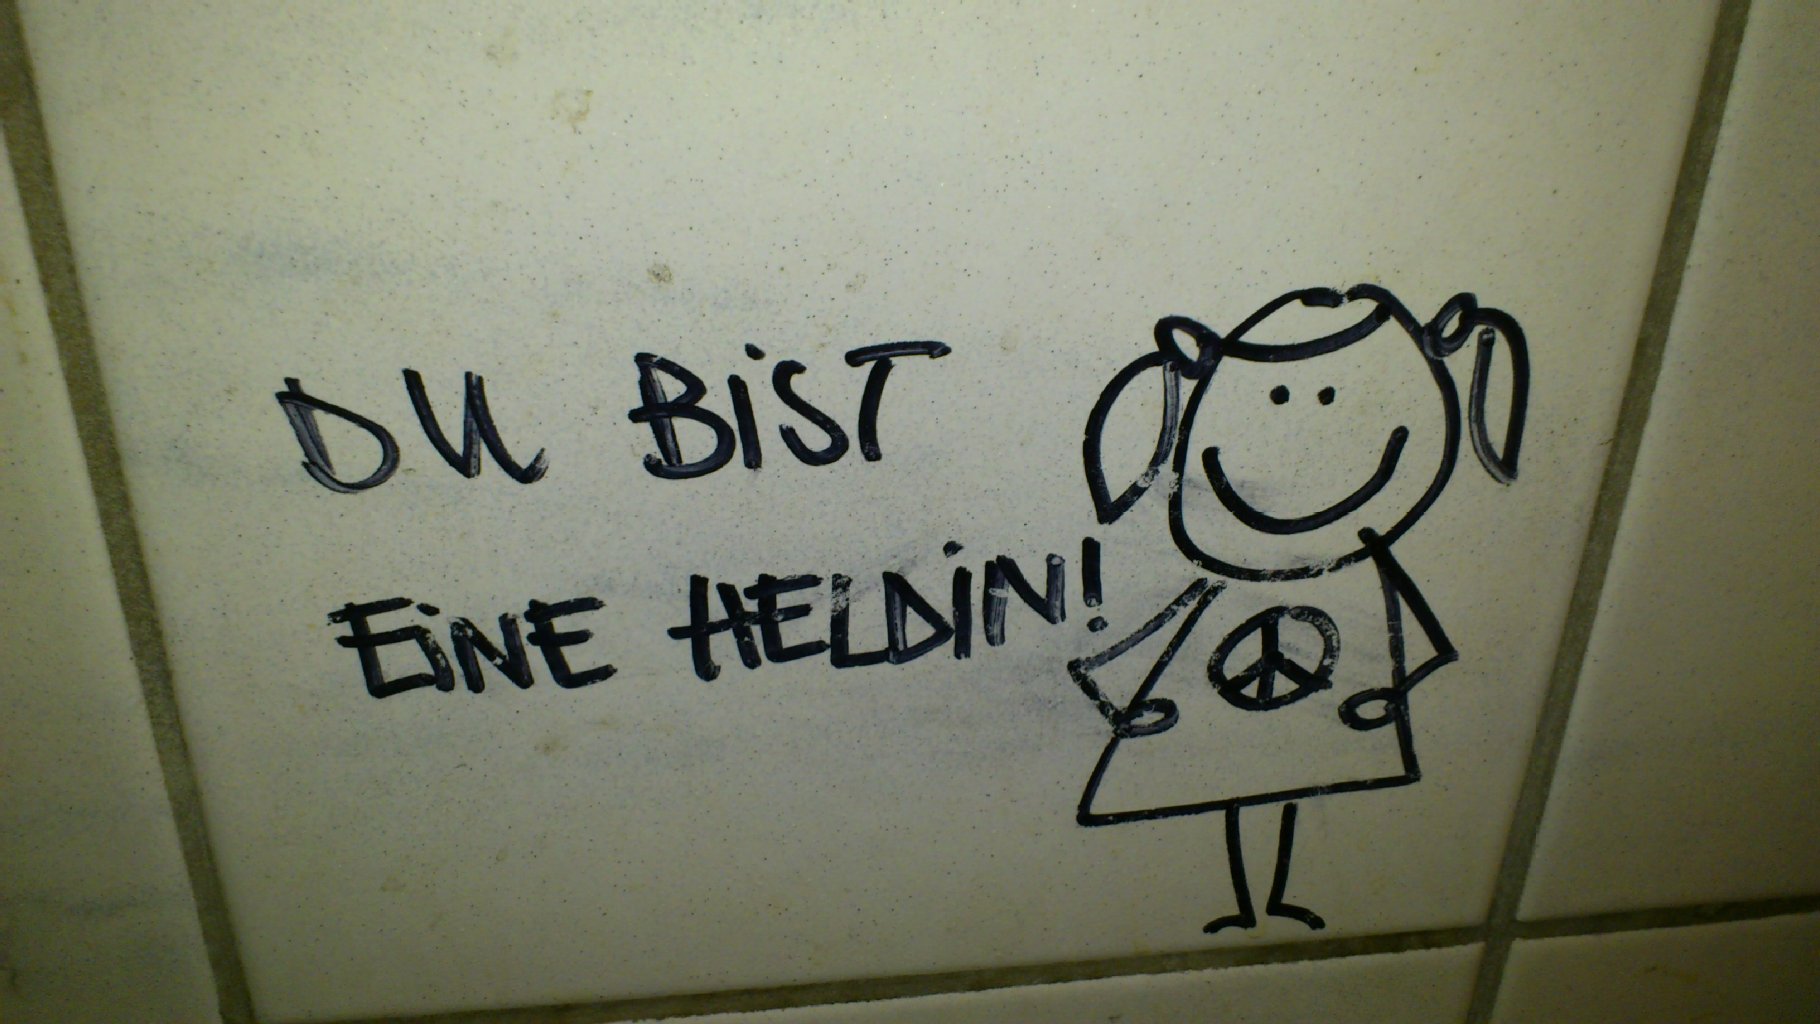 DU BiST
EiNE HELDiN!